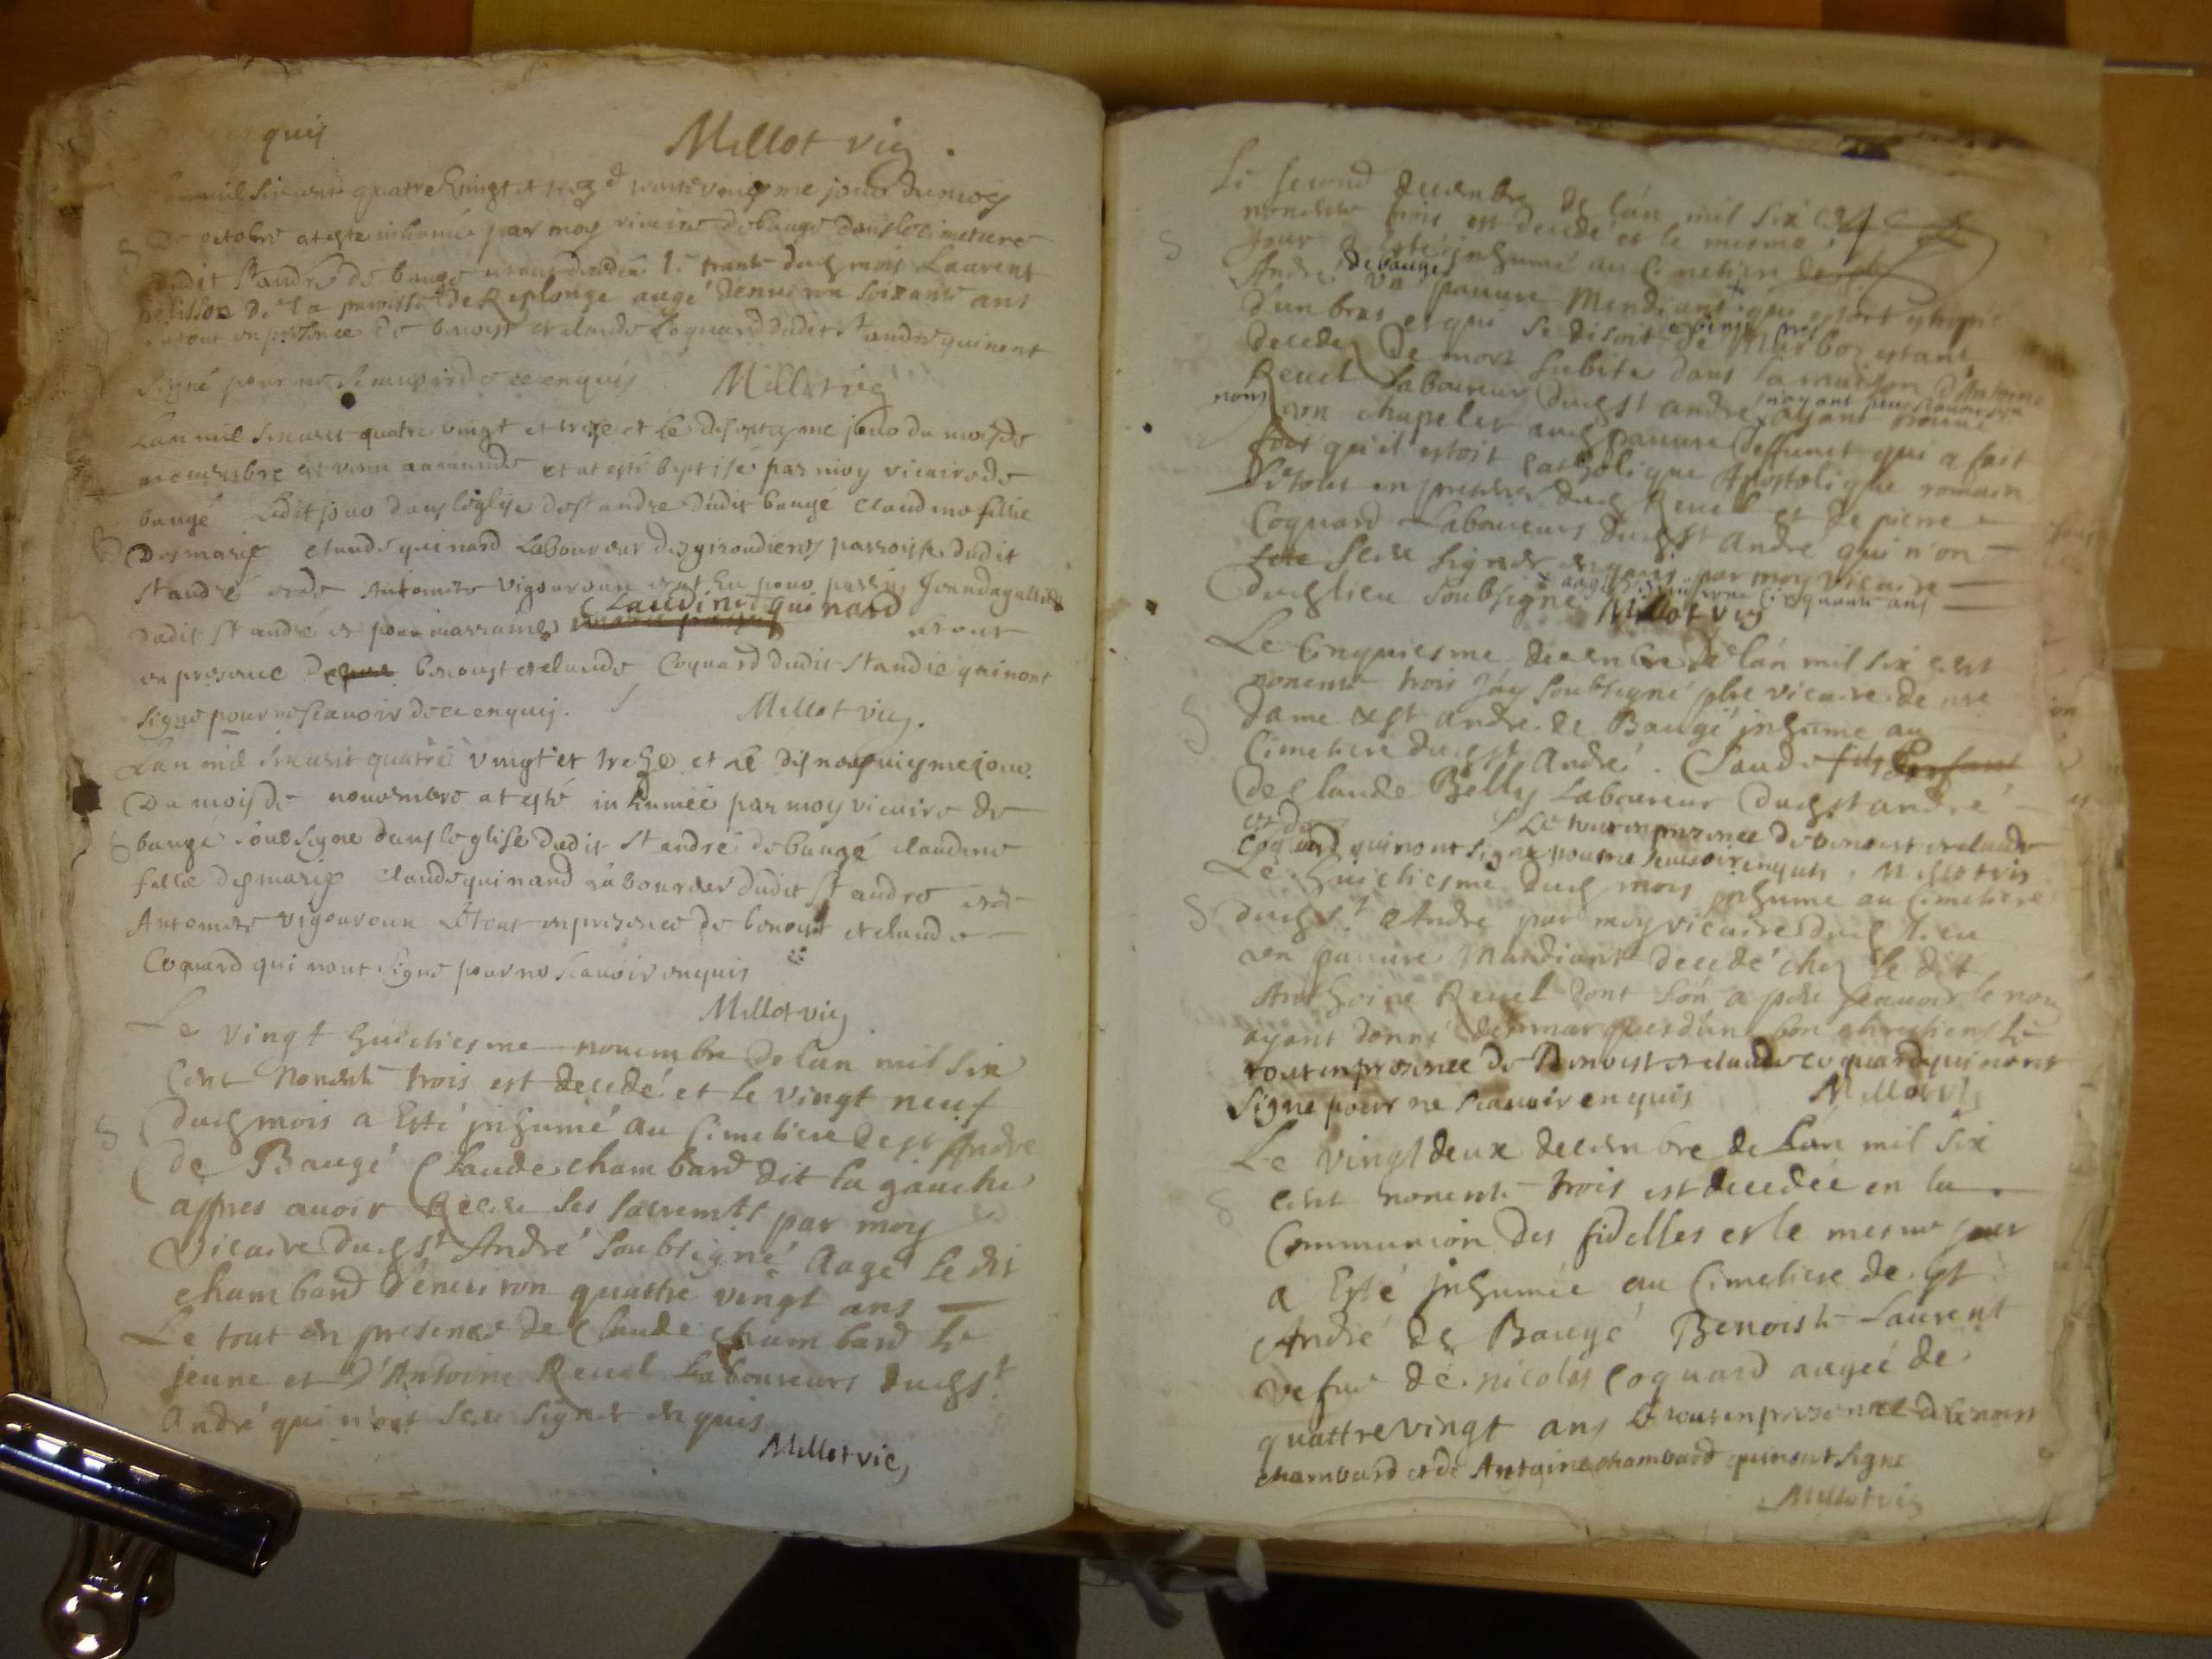 quis
Millot vic.
Lan mil six cent quatre vingt et treze et jour du mois
De octobre at este inhumé par moy vicaire de baugé dans le cimetiere
dudit St andré de baugé trante dud mois Laurent
de la paroisse de Replonge augé denviron soixante ans
le tout en presence de benoist et claude Coquard dudit St andré qui nont
signé pour ne scauoir de ce enquis Millot vic
Lan mil six cent quatre vingt et treze et Le disseptiesme jour du mois de
nouembre est venu au monde et at esté baptisé par moy vicaire de
baugé Ledit jour dans léglise de st andré dudit baugé Claudine fillie
des mariés claude quinard Laboureur des girondiens parroisse dudit
St andré et de Antoinete vigouroux et at eu pour parrin
dudit St andré et pour marraine Claudine quinard
et tout
en presence de benoist et claude Coquard dudit St andré qui nont
signé pour ne scauoir de ce enquis. Millot vic.
Lan mil six cent quatre vingt et treze et Le jour
Du mois de nouembre at esté inhumée par moy vicaire de
baugé soussigne dans leglise dudit St andré de baugé claudine
fille des mariés claude quinard Laboureur dudit St andré et de
Antoinete vigouroux Le tout en presence de benoist et claude
Coquard qui nont signé pour ne scauoir enquis
Millot vic
Le vingt huictiesme nouembre de lan mil six
cent nonente trois est decedé et le vingt neuf
dud mois a Esté inhumé au Cimetiere de st André
de Baugé Claude chambard dit la gauche
appres auoir Receu les sacremts par moy
vicaire dud st André soubsigné aagé le dit
chambard d'enuiron quattre vingt ans
Le tout en presence de Claude chambard le
jeune et d'Antoine Reuel Laboureurs dud st
André qui n'ont sceu signer enquis
Millot vic
Le second decembre de lán mil six cent
nonente trois est decedé et le mesme
Jour a Esté inhumé au Cimetiere de st
André de baugé un pauure Mendiant qui estoit estropié
d'un bras et qui se disoit de Marboz estant
decedé De mort subite dans la maison d'Antoine
Reuel Laboureur dud st andré n'ayant peu scauoir son
nom ayant trouué
un chapelet aud pauure deffunct qui a fait
foit qu'il estoit Catholique Apostolique romain
Le tout en presence dud Reuel et de pierre
Coquard Laboureurs dud st André qui n'on
sceu signer enquis par moy vicaire
dud lieu soubsigné aagé d'enuiron Cinquante ans
Millot vic
Le Cinquiesme decembre de lán mil six cent
nonente trois jáy soubsigné pbre vicaire de nre
dame et st andré de Baugé inhumé au
Cimetiere dud st André Claude
de Claude Belly Laboureur dud st andré
Le tout en presence de benoist et claude
Coquard qui nont signé pour ne scauoir enquis. Millot vic
Le huictiesme dud mois inhumé au Cimetiere
dud st. André par moy vicaire dud lieu
un pauure Mandiant decedé chez le dit
Anthoine Reuel dont lón a peu scauoir le nom
ayant donné des marques dún bon chrestien Le
tout en presence de Benoist et claude coquard qui nont
signé pour ne scauoir enquis Millot vic
Le vingt deux decembre de Lan mil six
cent nonente trois est decedée en la
Communion des fidelles et le mesme jour
a Esté inhumée au Cimetiere de st
André de Baugé Benoiste Laurent
vefue de nicolas Coquard augée de
quattre vingt ans Le tout en presence de benoist
chambard et de Antoine chambard qui nont signé
Millot vic